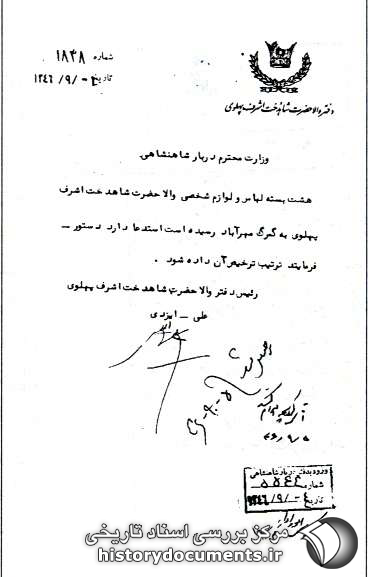 شماره ۱۸۴۸
تاریخ ۴-/۹/۱۳۴۶
دفتر والاحضرت شاهدخت اشرف پهلوی
وزارت محترم دربار شاهنشاهی
هشت بسته لباس و لوازم شخصی والا حضرت شاهدخت اشرف
پهلوی به گمرک مهرآباد رسیده است استدعا دارد دستور –
فرمایند ترتیب ترخیص آن داده شود .
رئیس دفتر والا حضرت شاهدخت اشرف پهلوی
علی – ایزدی
ورود به دفتر دربار شاهنشاهی
شماره
تاریخ
مرکز بررسی اسناد تاریخی
historydocuments.ir